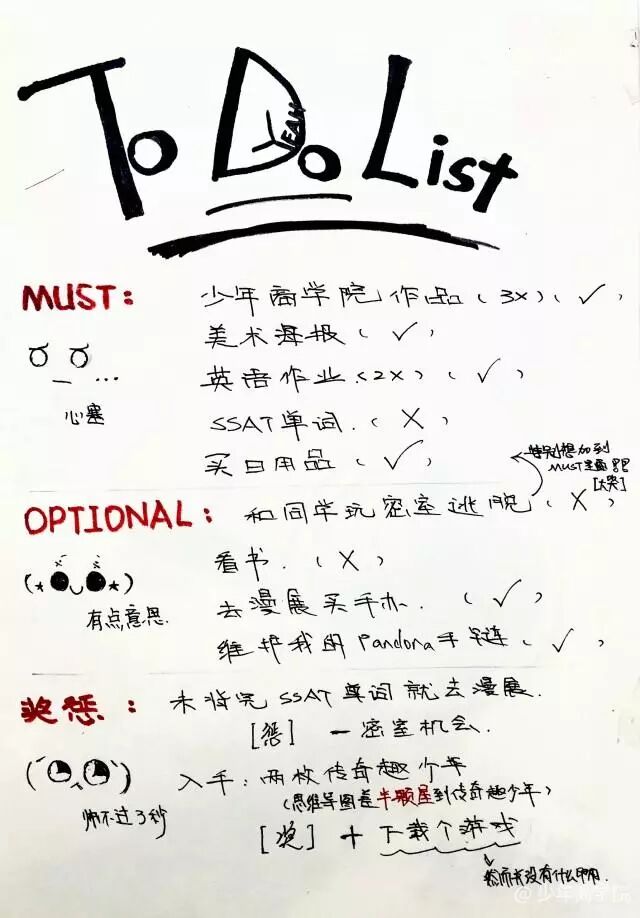 To Do List
YEAH
MUST: 少年商学院作品(3x)(✓)
美术海报(✓)
英语作业(2x)(✓)
心塞
SSAT单词.(X)
买日用品(✓)
特别想加到
MUST里面
[大哭]
OPTIONAL: 和同学玩密室逃脱(X)
看书.(X)
有点意思.
去漫展买手办.(✓)
维护我的Pandora手链(✓)
奖惩: 未将完SSAT单词就去漫展.
[惩] 一密室机会.
入手:两枚传奇趣少年
(思维导图差半颗星到传奇趣少年)
帅不过3秒
[奖] + 下载个游戏
然而并没有什么用.
@少年商学院